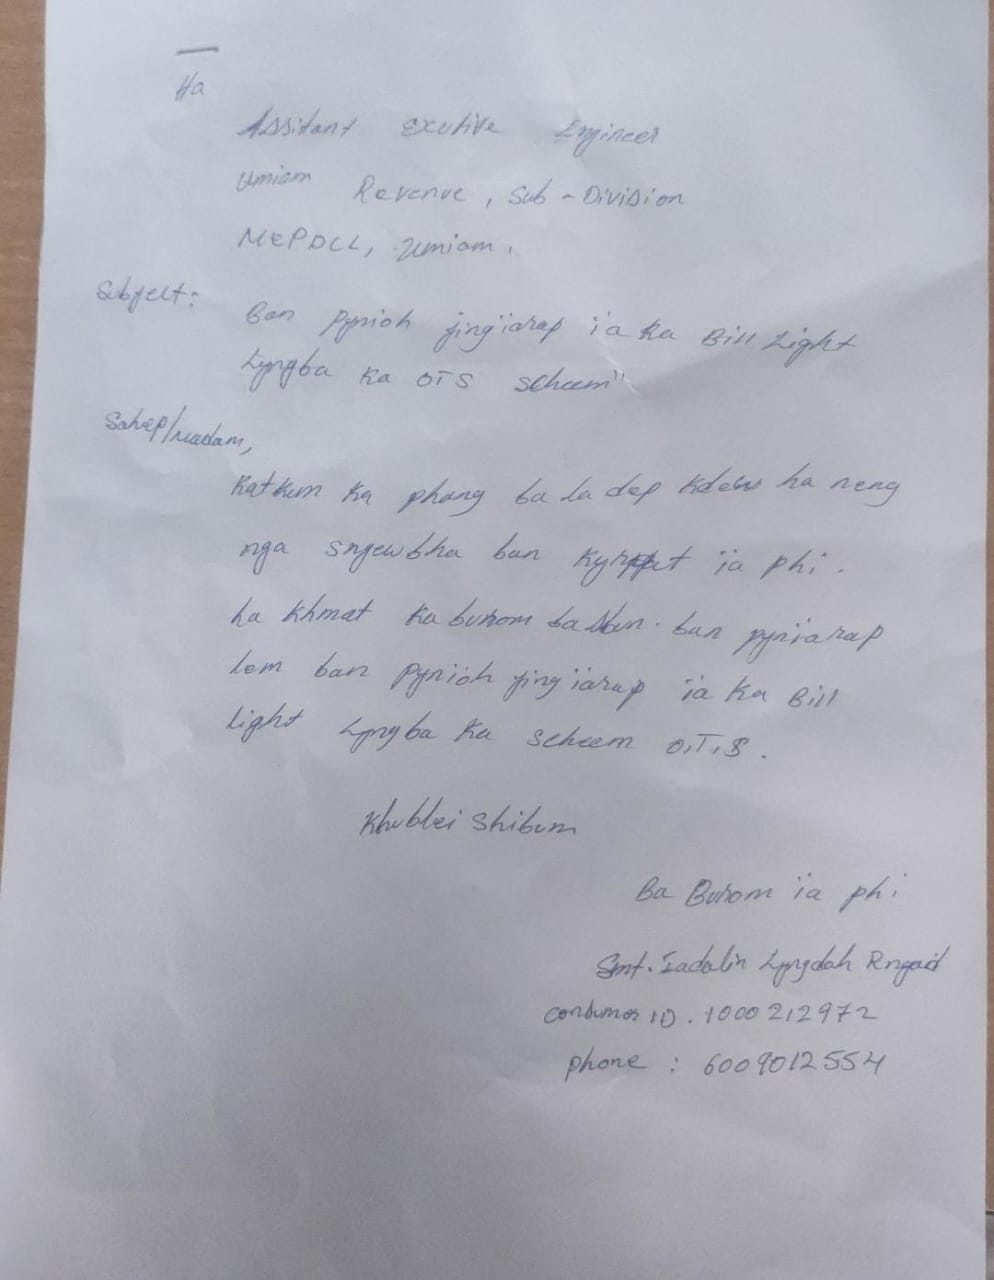 Ha
Assitant Excutive Engineer
Umiam Revenue, Sub-Division
MePDCL, Umiam.
Subject:
Ban Pynioh jingïarap ïa ka Bill Light
Lyngba ka OTS scheem"
Sahep/Madam,
Katkum ka phang ba la dep kdew ha neng
nga sngewbha ban kyrpet ïa phi.
ha khmat ka burom ba sbun. ban pynïarap
lem ban pynïoh jingïarap ïa ka Bill
light Lyngba ka scheem O.T.S.
Khublei Shibun
Ba Burom ïa phi
Smt. Iadalin Lyngdoh Rngaid
Consumer ID. 1000212972
phone : 6009012554